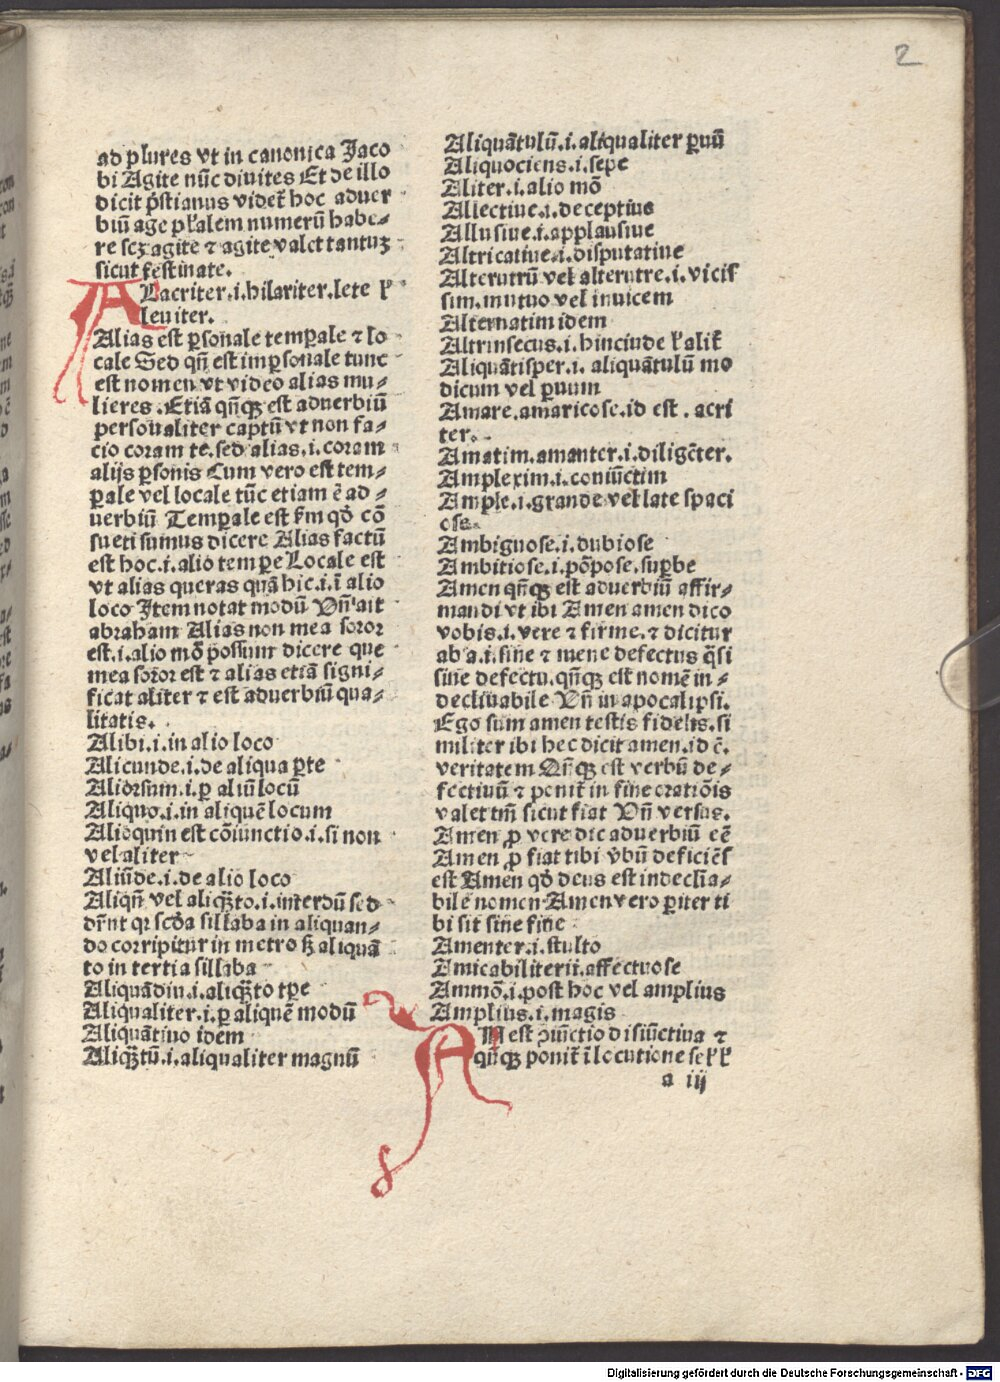 2
ad plures vt in canonica Jaco
bi Agite nūc diuites Et de illo
dicit p̄stianus videt̄ hoc aduer
biū age pl̄'alem numerū habe⸗
re scꝫ agite ⁊ agite valet tantuꝫ
sicut festinate.
ALacriter.i.hilariter.lete ł
leuiter.
Alias est ꝑsonale temꝑale ⁊ lo
cale Sed qn̄ est imꝑsonale tunc
est nomen vt video alias mu⸗
lieres. Etiā qn̄qꝫ est aduerbiū
personaliter captū vt non fa⸗
cio coram te.sed alias.i.coram
alijs ꝑsonis Cum vero est tem⸗
ꝑale vel locale tūc etiam ē ad⸗
uerbiū Temꝑale est ẜm qd̓ cō
sueti sumus dicere Alias factū
est hoc.i.alio temꝑe Locale est
vt alias queras quā hic.i.ī alio
loco Item notat modū Vn̄ ait
abraham Alias non mea soror
est.i.alio mō possum dicere que
mea soror est ⁊ alias etiā signi⸗
ficat aliter ⁊ est aduerbiū qua⸗
litatis.
Alibi.i.in alio loco
Alicunde.i.de aliqua ꝑte
Aliorsum.i.ꝑ aliū locū
Aliquo.i.in aliquē locum
Alioquin est cōiunctio.i.si non
vel aliter
Aliūde.i.de alio loco
Aliqn̄ vel aliqꝫto.i.interdū sed
dr̄nt qꝛ scd̓a sillaba in aliquan⸗
do corripitur in metro sꝫ aliquā
to in tertia sillaba
Aliquādiu.i.aliqꝫto tꝑe
Aliqualiter.i.ꝑ aliquē modū
Aliquātino idem
Aliqꝫtū.i.aliqualiter magnū
Aliquātulū.i.aliqualiter ꝑuū
Aliquociens.i.sepe
Aliter.i.alio mō
Allectiue.i.deceptius
Allusiue.i.applausiue
Altricatiue.i.disputatiue
Alterutrū vel alterutre.i.vicis
sim.mutuo vel inuicem
Alternatim idem
Altrinsecus.i.hincinde ł alit̄
Aliquātisper.i. aliquātulū mo
dicum vel ꝑuum
Amare.amaricose.id est.acri
ter.
Amatim.amanter.i.diligēter.
Amplexim.i.coniūctim
Ample.i.grande vel late spaci
ose.
Ambiguose.i.dubiose
Ambitiose.i.pōpose.suꝑbe
Amen qn̄qꝫ est aduerbiū affir⸗
mandi vt ibi Amen amen dico
vobis.i.vere ⁊ firme.⁊ dicitur
ab a.i.sine ⁊ mene defectus q̄si
sine defectu.qn̄qꝫ est nomē in⸗
declinabile Vn̄ in apocalipsi.
Ego sum amen testis fidelis.si
militer ibi hec dicit amen.id ē.
veritatem Qn̄qꝫ est verbū de⸗
fectiuū ⁊ ponit̄ in fine oratiōis
valet tm̄ sicut fiat Vn̄ versus.
Amen ꝓ vere dic aduerbiū eē
Amen ꝓ fiat tibi v̓bū deficiēs
est Amen qd̓ deus est indeclīa⸗
bile nomen Amen vero ꝑiter ti
bi sit sine fine
Amenter.i.stulto
Amicabiliter.i.affectuose
Ammō.i.post hoc vel amplius
Amplius.i.magis
AN est ꝯiūctio disiūctiua ⁊
qn̄qꝫ ponit̄ ī locutione
a iij
Digitalisierung gefördert durch die Deutsche Forschungsgemeinschaft - DFG